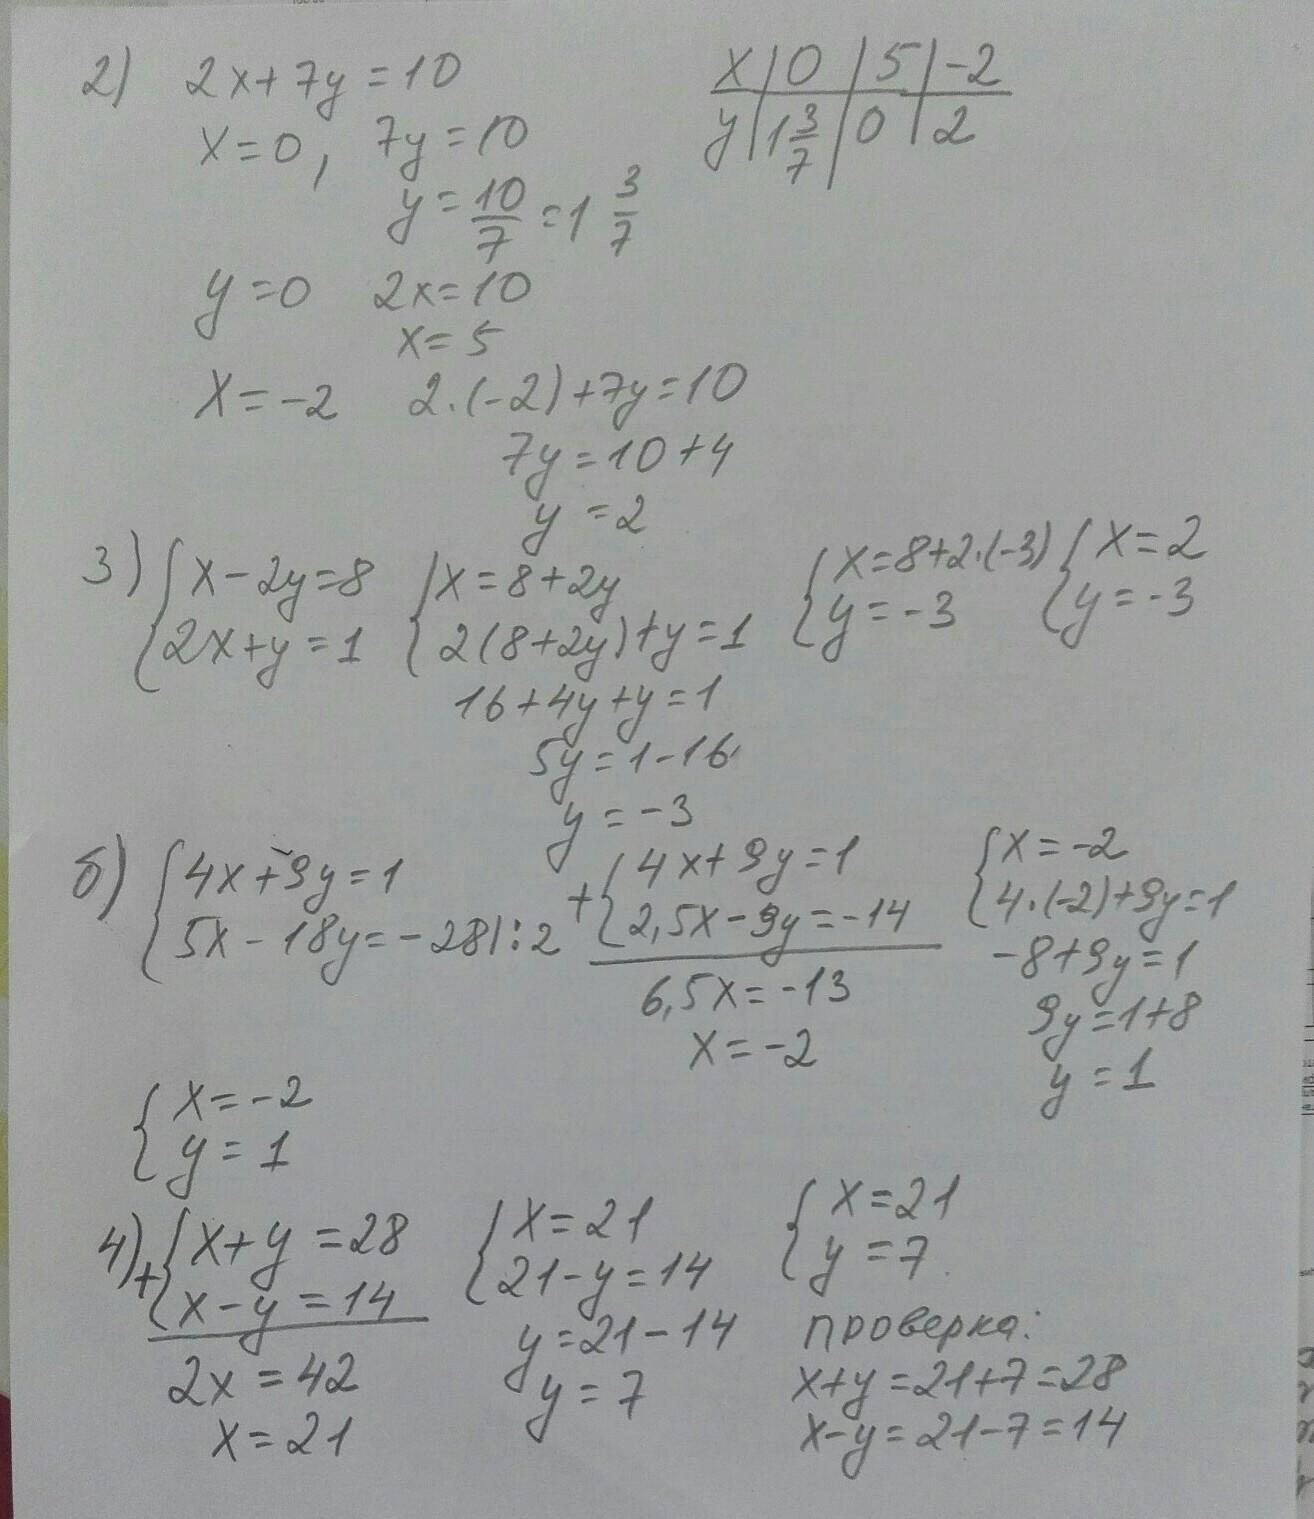 2) 2x+7y=10
x=0, 7y=10
y=10/7=1 3/7
x | 0 | 5 | -2
y | 1 3/7 | 0 | 2
y=0 2x=10
x=5
x=-2 2·(-2)+7y=10
7y=10+4
y=2
3) {x-2y=8
2x+y=1
{x=8+2y
2(8+2y)+y=1
16+4y+y=1
5y=1-16
y=-3
{x=8+2·(-3)
y=-3
{x=2
y=-3
б) {4x+9y=1
5x-18y=-28|:2
+{4x+9y=1
2,5x-9y=-14
6,5x=-13
x=-2
{x=-2
4·(-2)+9y=1
-8+9y=1
9y=1+8
y=1
{x=-2
y=1
4) +{x+y=28
x-y=14
2x=42
x=21
{x=21
21-y=14
y=21-14
y=7
{x=21
y=7
проверка:
x+y=21+7=28
x-y=21-7=14